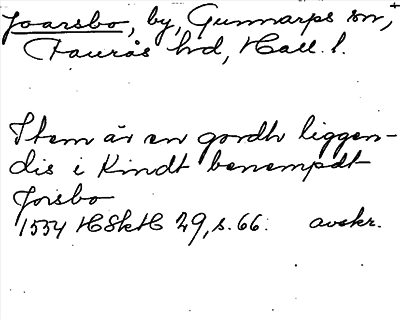 Joarsbo, by, Gunnarps sn,+
Faurås hd, Hall. l.
Item är en gordh liggen-
dis i Kindt benempdt
Jorsbo
1554 HSkH 29, s. 66. avskr.